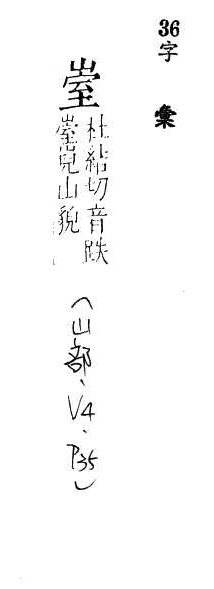 36字彙
杜結切音跌
山貌
(山部、V4、P35)